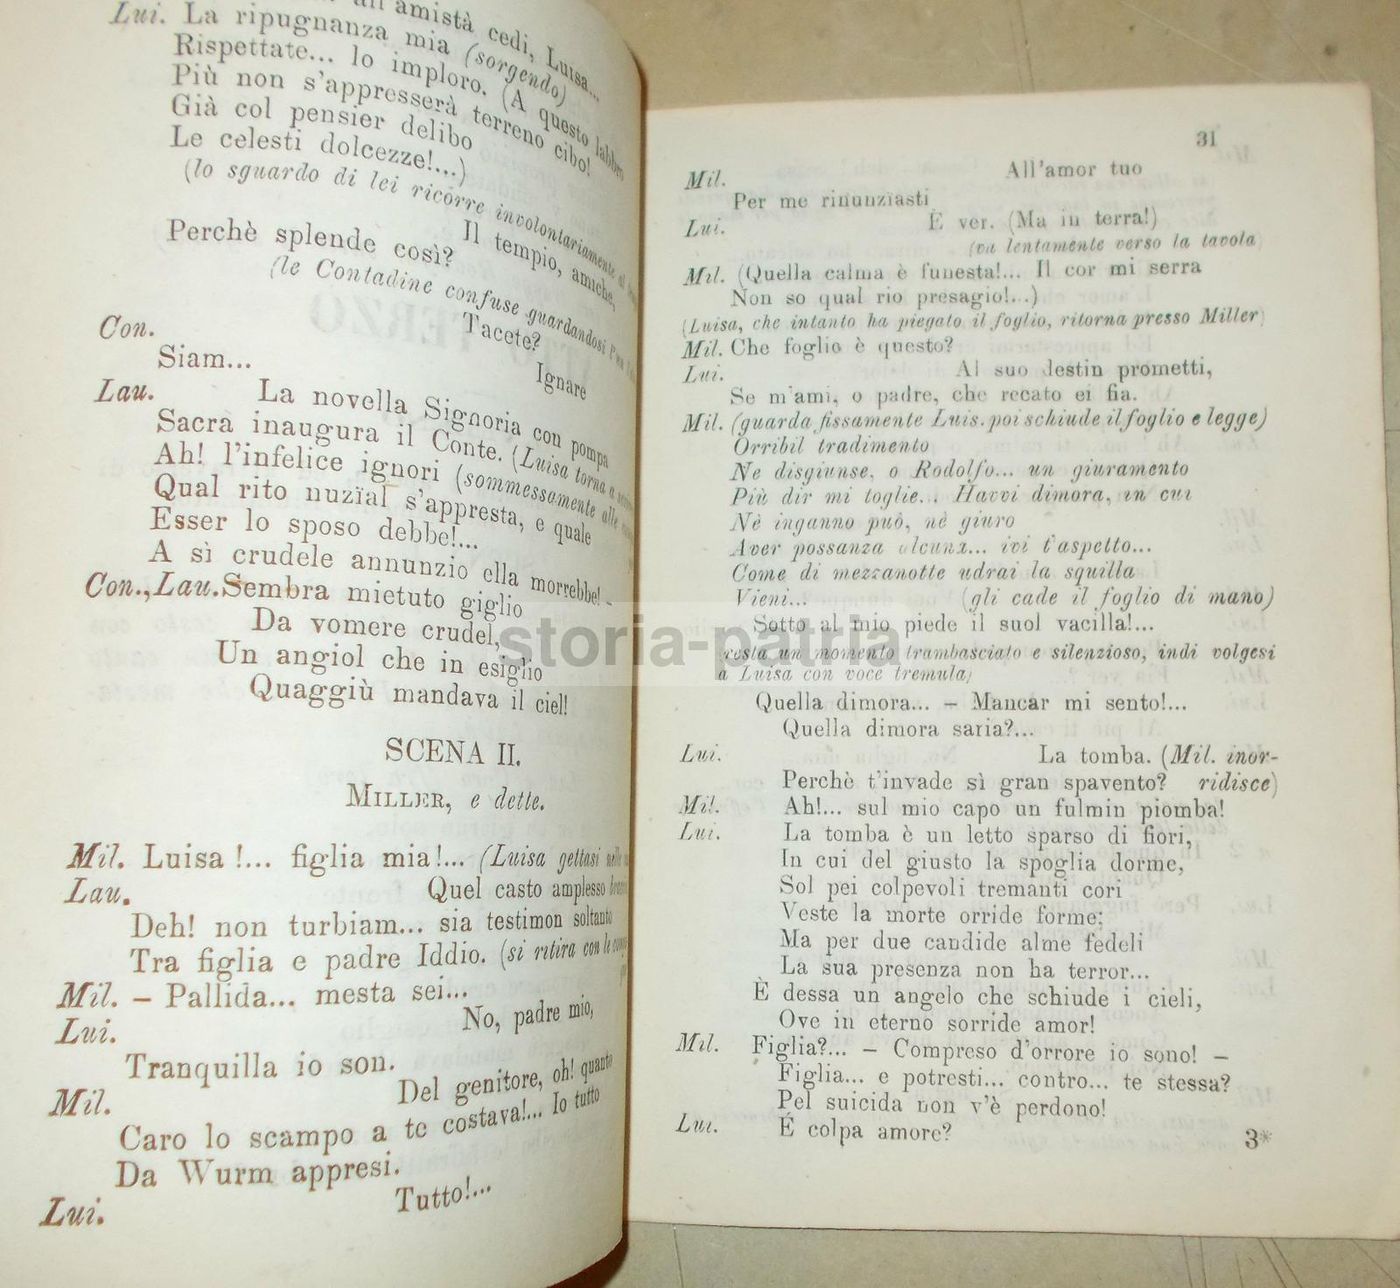 all'amistà cedi, Luisa...
Lui. La ripugnanza mia (sorgendo)
Rispettate... lo imploro. (A questo labbro
Più non s'appresserà terreno cibo!
Già col pensier delibo
Le celesti dolcezze!...)
(lo sguardo di lei ricorre involontariamente al
Il tempio, amiche,
Perchè splende così?
(le Contadine confuse guardandosi l'una
Con. Tacete?
Siam... Ignare
Lau. La novella Signoria con pompa
Sacra inaugura il Conte. (Luisa torna a
Ah! l'infelice ignori (sommessamente alle
Qual rito nuzïal s'appresta, e quale
Esser lo sposo debbe!...
A sì crudele annunzio ella morrebbe! -
Con., Lau. Sembra mietuto giglio
Da vomere crudel,
Un angiol che in esiglio
Quaggiù mandava il ciel!
SCENA II.
MILLER, e dette.
Mil. Luisa!... figlia mia!... (Luisa gettasi nelle
Lau. Quel casto amplesso
Deh! non turbiam... sia testimon soltanto
Tra figlia e padre Iddio. (si ritira con le
Mil. – Pallida... mesta sei...
Lui. No, padre mio,
Tranquilla io son.
Mil. Del genitore, oh! quanto
Caro lo scampo a te costava!... Io tutto
Da Wurm appresi.
Lui. Tutto!...
31
Mil. All'amor tuo
Per me rinunzïasti
Lui. È ver. (Ma in terra!)
(va lentamente verso la tavola)
Mil. (Quella calma è funesta!... Il cor mi serra
Non so qual rio presagio!...)
(Luisa, che intanto ha piegato il foglio, ritorna presso Miller)
Mil. Che foglio è questo?
Lui. Al suo destin prometti,
Se m'ami, o padre, che recato ei fia.
Mil. (guarda fissamente Luis. poi schiude il foglio e legge)
Orribil tradimento
Ne disgiunse, o Rodolfo... un giuramento
Più dir mi toglie... Havvi dimora, in cui
Nè inganno può, nè giuro
Aver possanza alcuna... ivi t'aspetto...
Come di mezzanotte udrai la squilla
Vieni... (gli cade il foglio di mano)
Sotto al mio piede il suol vacilla!...
resta un momento trambasciato e silenzioso, indi volgesi
a Luisa con voce tremula)
Quella dimora... – Mancar mi sento!...
Quella dimora saria?...
Lui. La tomba. (Mil. inor-
Perchè t'invade sì gran spavento? ridisce)
Mil. Ah!... sul mio capo un fulmin piomba!
Lui. La tomba è un letto sparso di fiori,
In cui del giusto la spoglia dorme,
Sol pei colpevoli tremanti cori
Veste la morte orride forme;
Ma per due candide alme fedeli
La sua presenza non ha terror...
È dessa un angelo che schiude i cieli,
Ove in eterno sorride amor!
Mil. Figlia?... – Compreso d'orrore io sono! –
Figlia... e potresti... contro... te stessa?
Pel suicida non v'è perdono!
Lui. È colpa amore?
3*
storia-patria